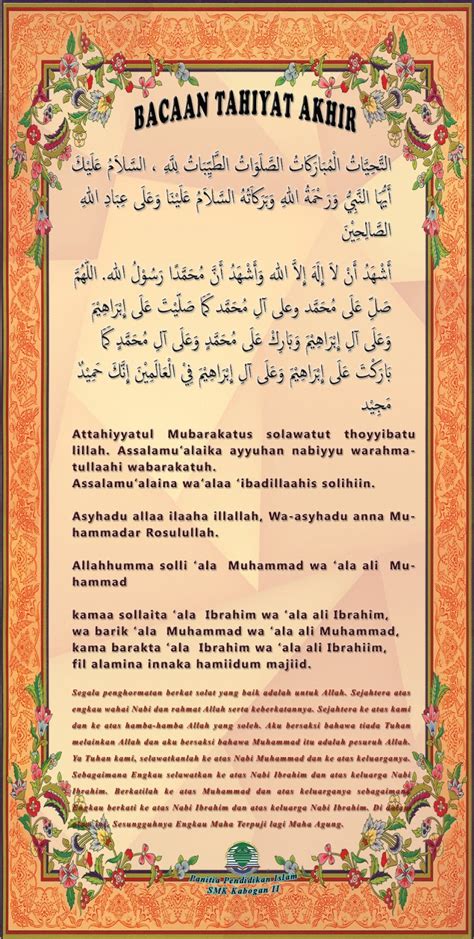 BACAAN TAHIYAT AKHIR
التَّحِيَّاتُ الْمُبَارَكَاتُ الصَّلَوَاتُ الطَّيِّبَاتُ لِلَّهِ ، السَّلاَمُ عَلَيْكَ
أَيُّهَا النَّبِيُّ وَرَحْمَةُ اللهِ وَبَرَكَاتُهُ السَّلاَمُ عَلَيْنَا وَعَلَى عِبَادِ اللهِ
الصَّالِحِيْنَ
أَشْهَدُ أَنْ لاَ إِلَهَ إِلاَّ اللهِ وَأَشْهَدُ أَنَّ مُحَمَّدًا رَسُوْلُ اللهِ. اللَّهُمَّ
صَلِّ عَلَى مُحَمَّد وعلى آلِ مُحَمَّد كَمَا صَلَّيْتَ عَلَى إِبْرَاهِيْمَ
وَعَلَى آلِ إِبْرَاهِيْمَ وَبَارِكْ عَلَى مُحَمَّدٍ وَعَلَى آلِ مُحَمَّدٍ كَمَا
بَارَكْتَ عَلَى إِبْرَاهِيْمَ وَعَلَى آلِ إِبْرَاهِيْمَ فِيْ الْعَالَمِيْنَ إِنَّكَ حَمِيْدٌ
مَجِيْد
Attahiyyatul Mubarakatus solawatut thoyyibatu
lillah. Assalamu‘alaika ayyuhan nabiyyu warahma-
tullaahi wabarakatuh.
Assalamu‘alaina wa‘alaa ‘ibadillaahis solihiin.
Asyhadu allaa ilaaha illallah, Wa-asyhadu anna Mu-
hammadar Rosulullah.
Allahhumma solli ‘ala Muhammad wa ‘ala ali Mu-
hammad
kamaa sollaita ‘ala Ibrahim wa ‘ala ali Ibrahim,
wa barik ‘ala Muhammad wa ‘ala ali Muhammad,
kama barakta ‘ala Ibrahim wa ‘ala ali Ibrahiim,
fil alamina innaka hamiidum majiid.
Segala penghormatan berkat solat yang baik adalah untuk Allah. Sejahtera atas
engkau wahai Nabi dan rahmat Allah serta keberkatannya. Sejahtera ke atas kami
dan ke atas hamba-hamba Allah yang soleh. Aku bersaksi bahawa tiada Tuhan
melainkan Allah dan aku bersaksi bahawa Muhammad itu adalah pesuruh Allah.
Ya Tuhan kami, selawatkanlah ke atas Nabi Muhammad dan ke atas keluarganya.
Sebagaimana Engkau selawatkan ke atas Nabi Ibrahim dan atas keluarga Nabi
Ibrahim. Berkatilah ke atas Muhammad dan atas keluarganya sebagaimana
Engkau berkati ke atas Nabi Ibrahim dan atas keluarga Nabi Ibrahim. Di
ini. Sesungguhnya Engkau Maha Terpuji lagi Maha Agung.
Panitia Pendidikan Islam
SMK Kabogan II